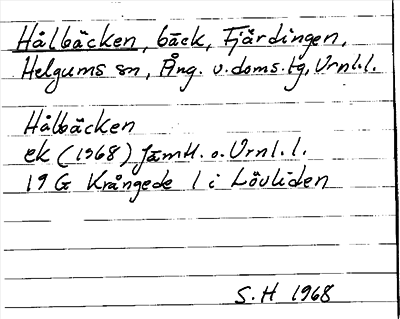 Hålbäcken, bäck, Fjärdingen,
Helgums sn, Ång. v. doms. tg, Vrnl.l.
Hålbäcken
ek (1968) Jämtl. o. Vrnl. l.
19 G Krångede 1 i Lövliden
S.H 1968